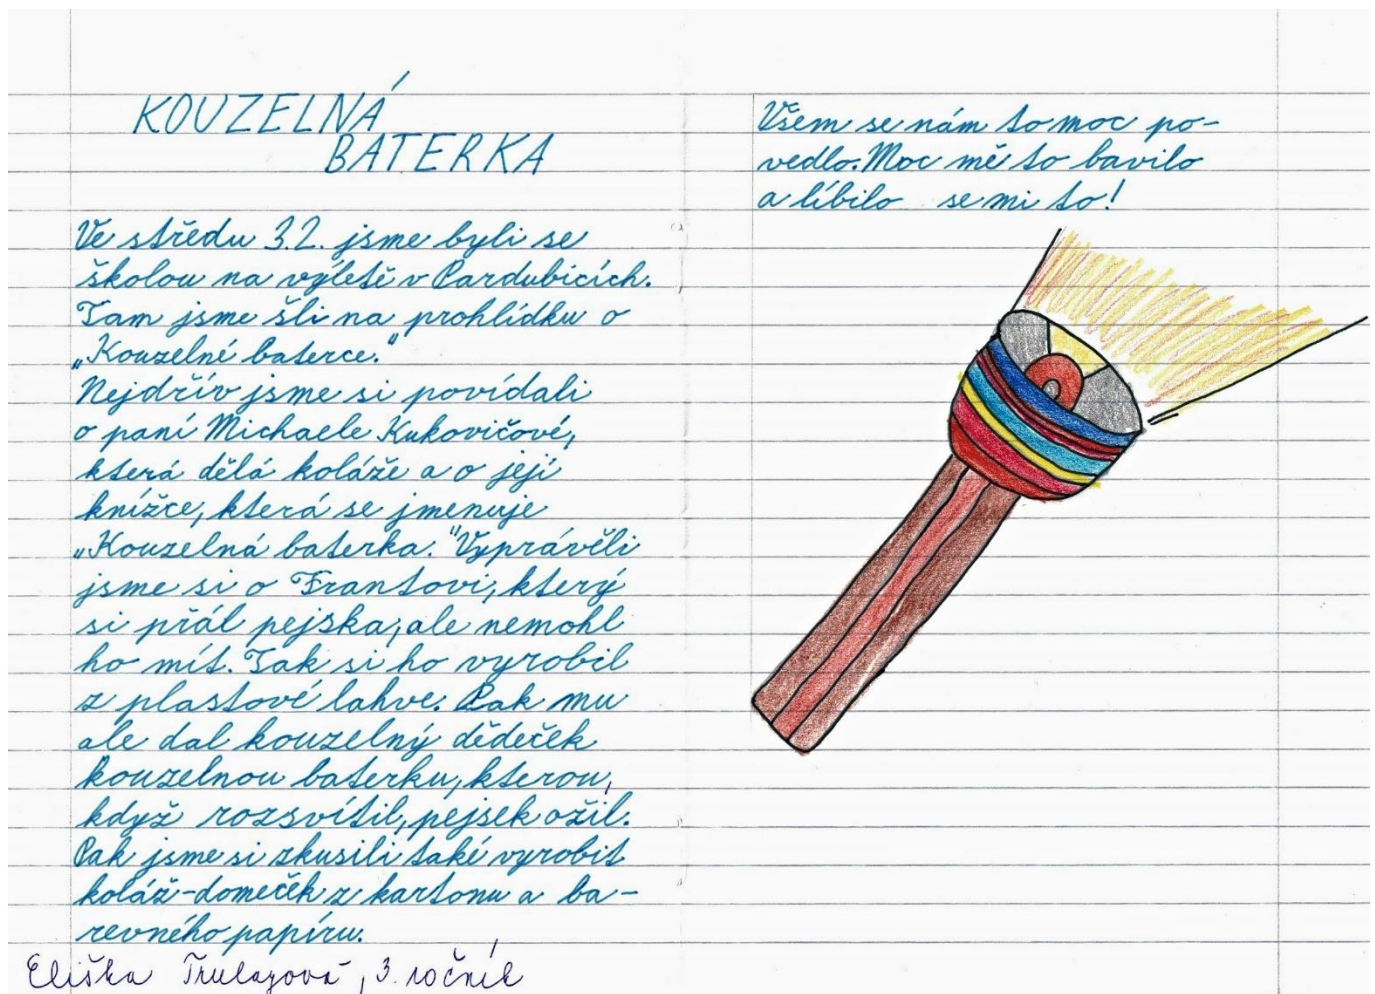 KOUZELNÁ
BATERKA
Ve středu 3.2. jsme byli se
školou na výletě v Pardubicích.
Tam jsme šli na prohlídku o
„Kouzelné baterce.“
Nejdřív jsme si povídali
o paní Michaele Kukovičové,
která dělá koláže a o její
knížce, která se jmenuje
„Kouzelná baterka.“ Vyprávěli
jsme si o Frantovi, který
si přál pejska, ale nemohl
ho mít. Tak si ho vyrobil
z plastové lahve. Pak mu
ale dal kouzelný dědeček
kouzelnou baterku, kterou,
když rozsvítil, pejsek ožil.
Pak jsme si zkusili také vyrobit
koláž-domeček z kartonu a ba-
revného papíru.
Eliška, 3. ročník
Všem se nám to moc po-
vedlo. Moc mě to bavilo
a líbilo se mi to!